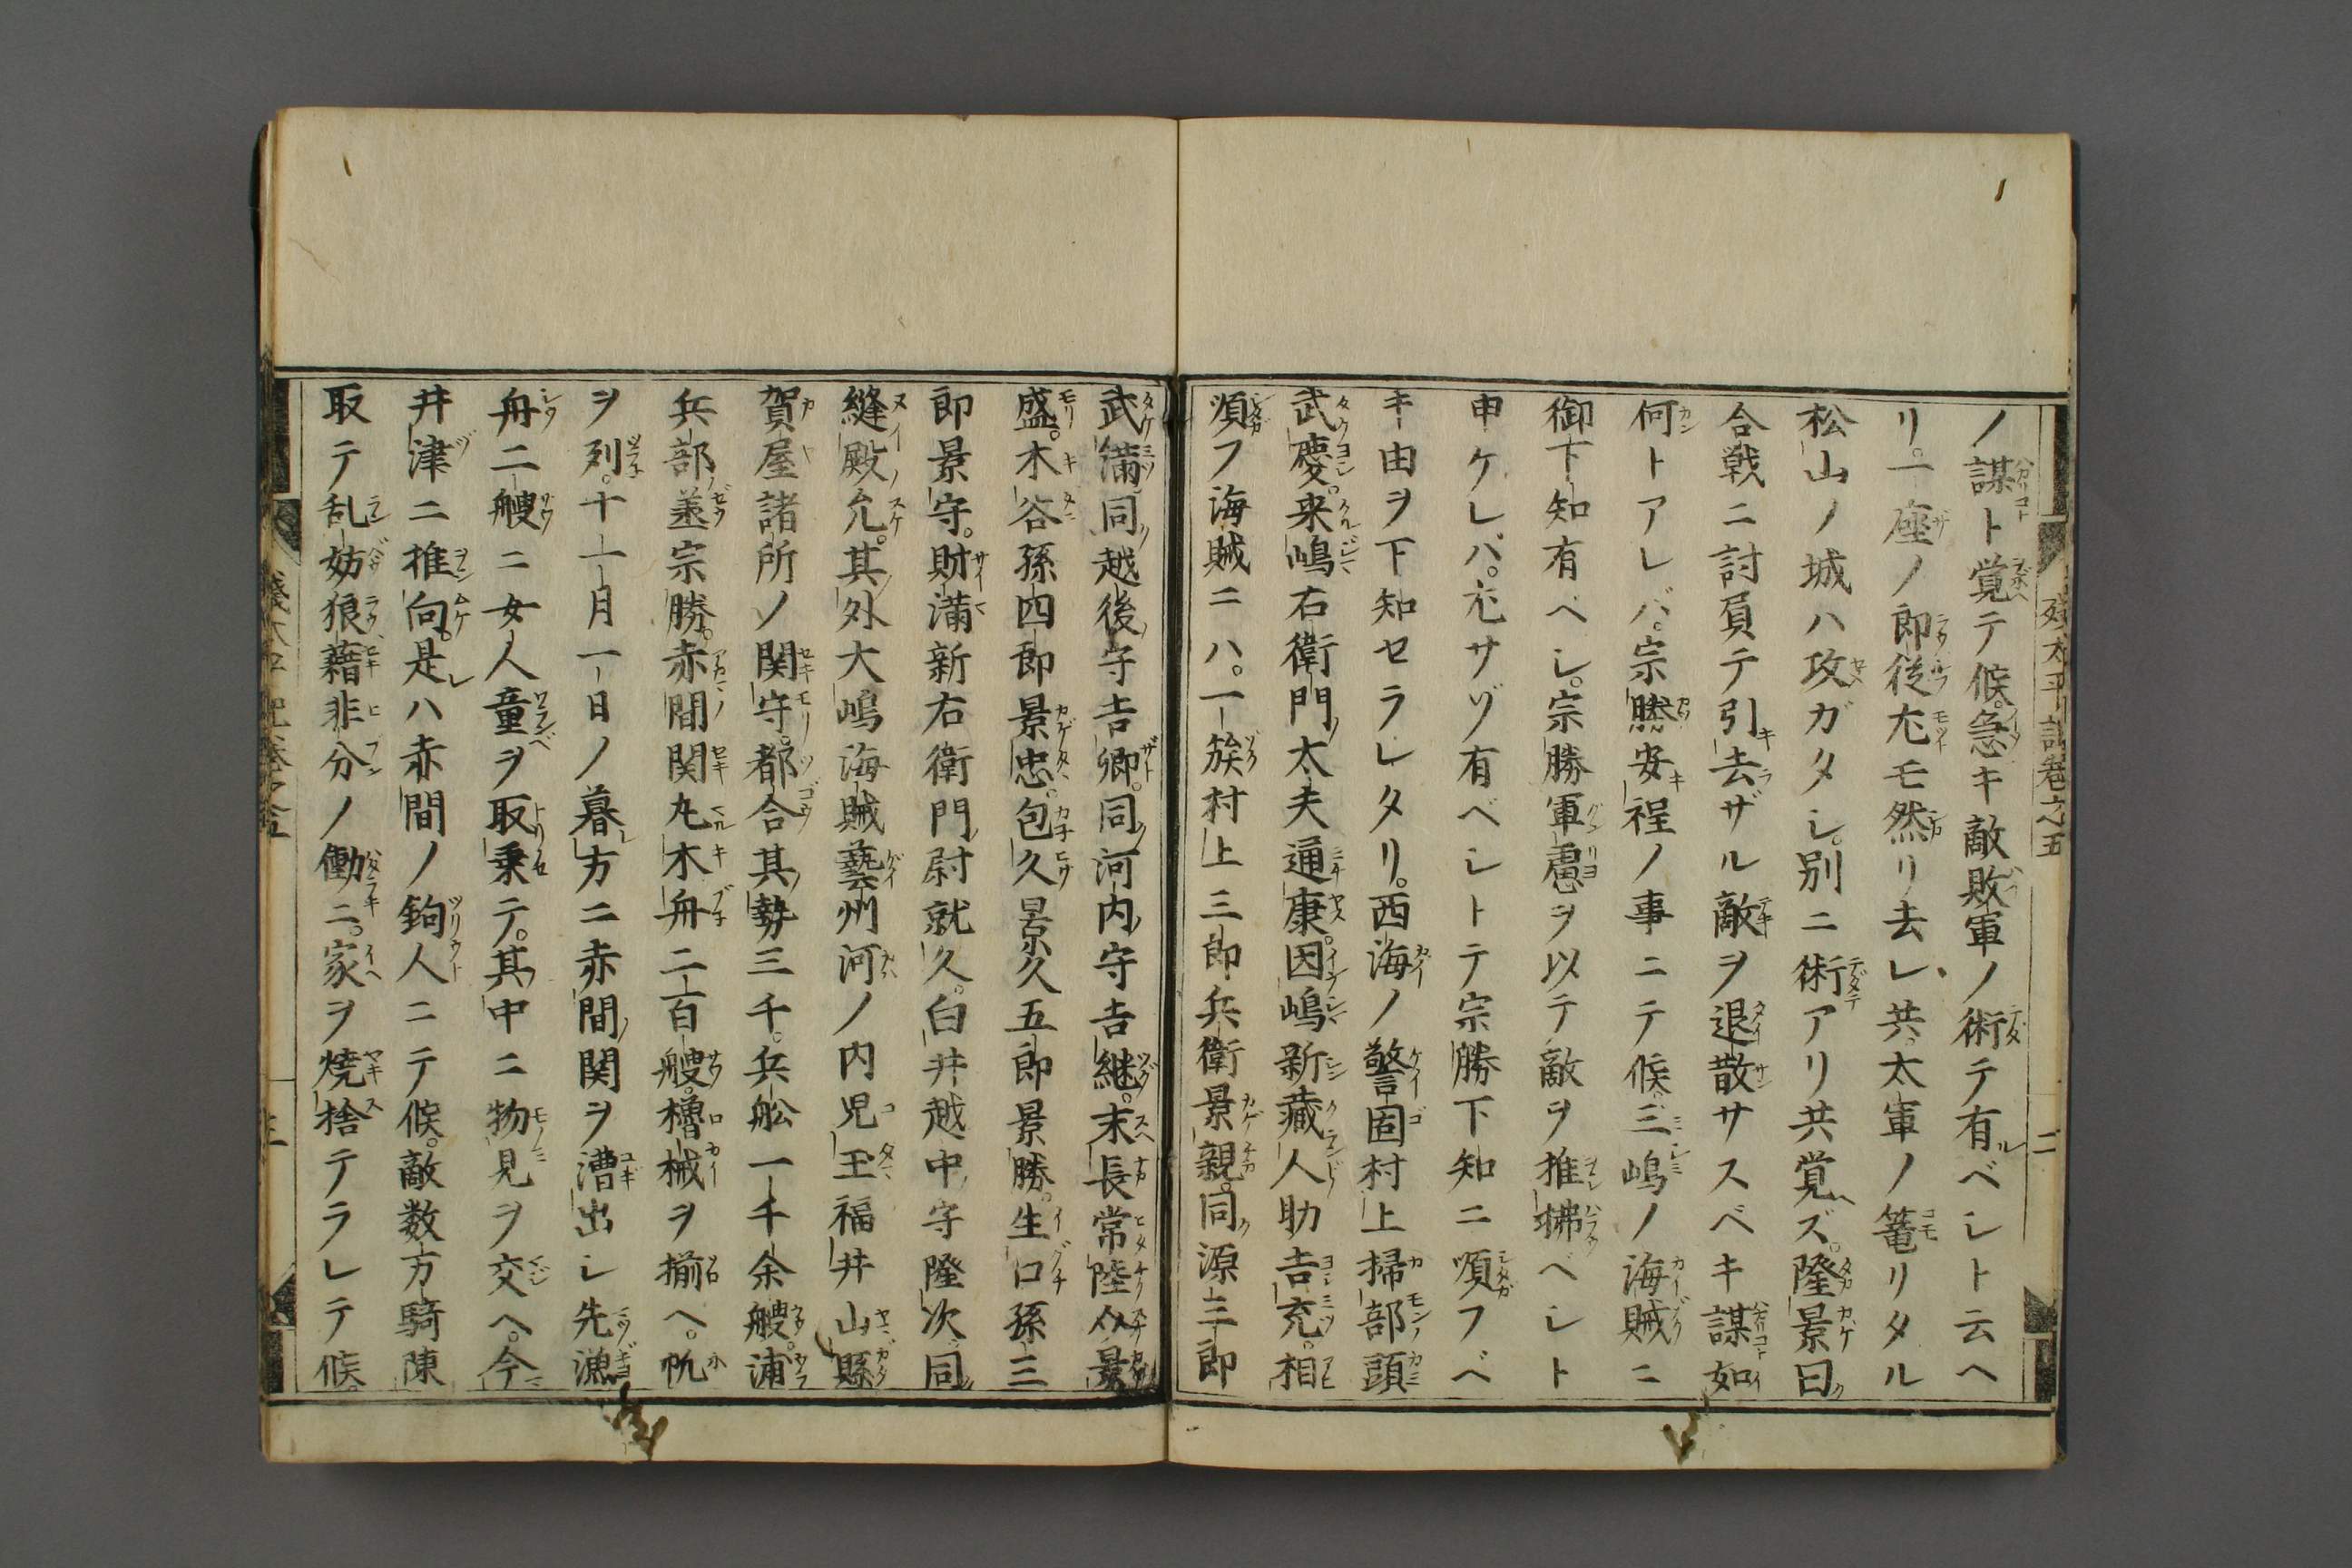 ノ謀ト覚テ候。急キ敵敗軍ノ術テ有ベシト云ヘ
リ。一座ノ郎従尤モ然リ去レ共。太軍ノ篭リタル
松山ノ城ハ攻ガタシ。別ニ術アリ共覚ズ。隆景曰
合戦ニ討負テ引去ザル敵ヲ退散サスベキ謀如
何トアレバ。宗勝安程ノ事ニテ候。三嶋ノ海賊ニ
御下知有ヘシ。宗勝軍慮ヲ以テ敵ヲ推拂ベシト
申ケレバ。尤サゾ有ベシトテ宗勝下知ニ順フベ
キ由ヲ下知セラレタリ。西海ノ警固村上掃部頭
武慶。来嶋右衛門太夫通康。因嶋新蔵人助吉充。相
順フ海賊ニハ。一族村上三郎兵衛景親。同源三郎
武満。同越後守吉郷。同河内守吉継。末長常陸介景
盛。木谷孫四郎景忠。包久景久五郎景勝。生口孫三
郎景守。財満新右衛門尉就久。白井越中守隆次。同
縫殿允。其外大嶋海賊藝州河ノ内児玉福井山縣
賀屋諸所ノ関守。都合其勢三千。兵舩一千余艘。浦
兵部丞宗勝。赤間関丸木舟二百艘櫓械ヲ揃ヘ。帆
ヲ列。十一月一日ノ暮方ニ赤間関ヲ漕出シ先漁
舟二艘ニ女人童ヲ取乗テ。其中ニ物見ヲ交ヘ。今
井津ニ推向。是ハ赤間ノ鉤人ニテ候。敵数万騎陳
取テ乱妨狼藉非分ノ働ニ。家ヲ焼捨テラレテ候。
残太平記巻之五
二